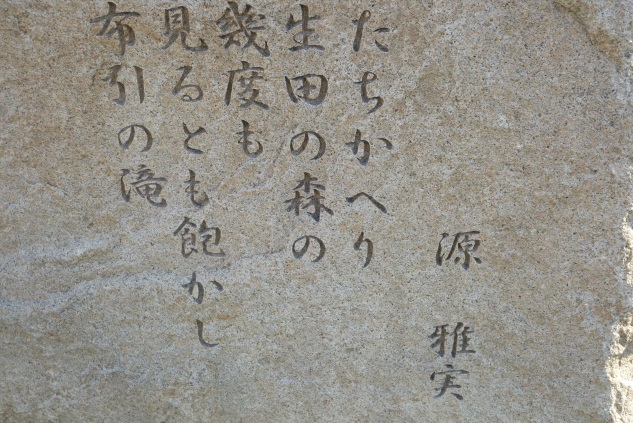 源 雅実
たちかへり
生田の森の
幾度も
見るとも飽かし
布引の滝